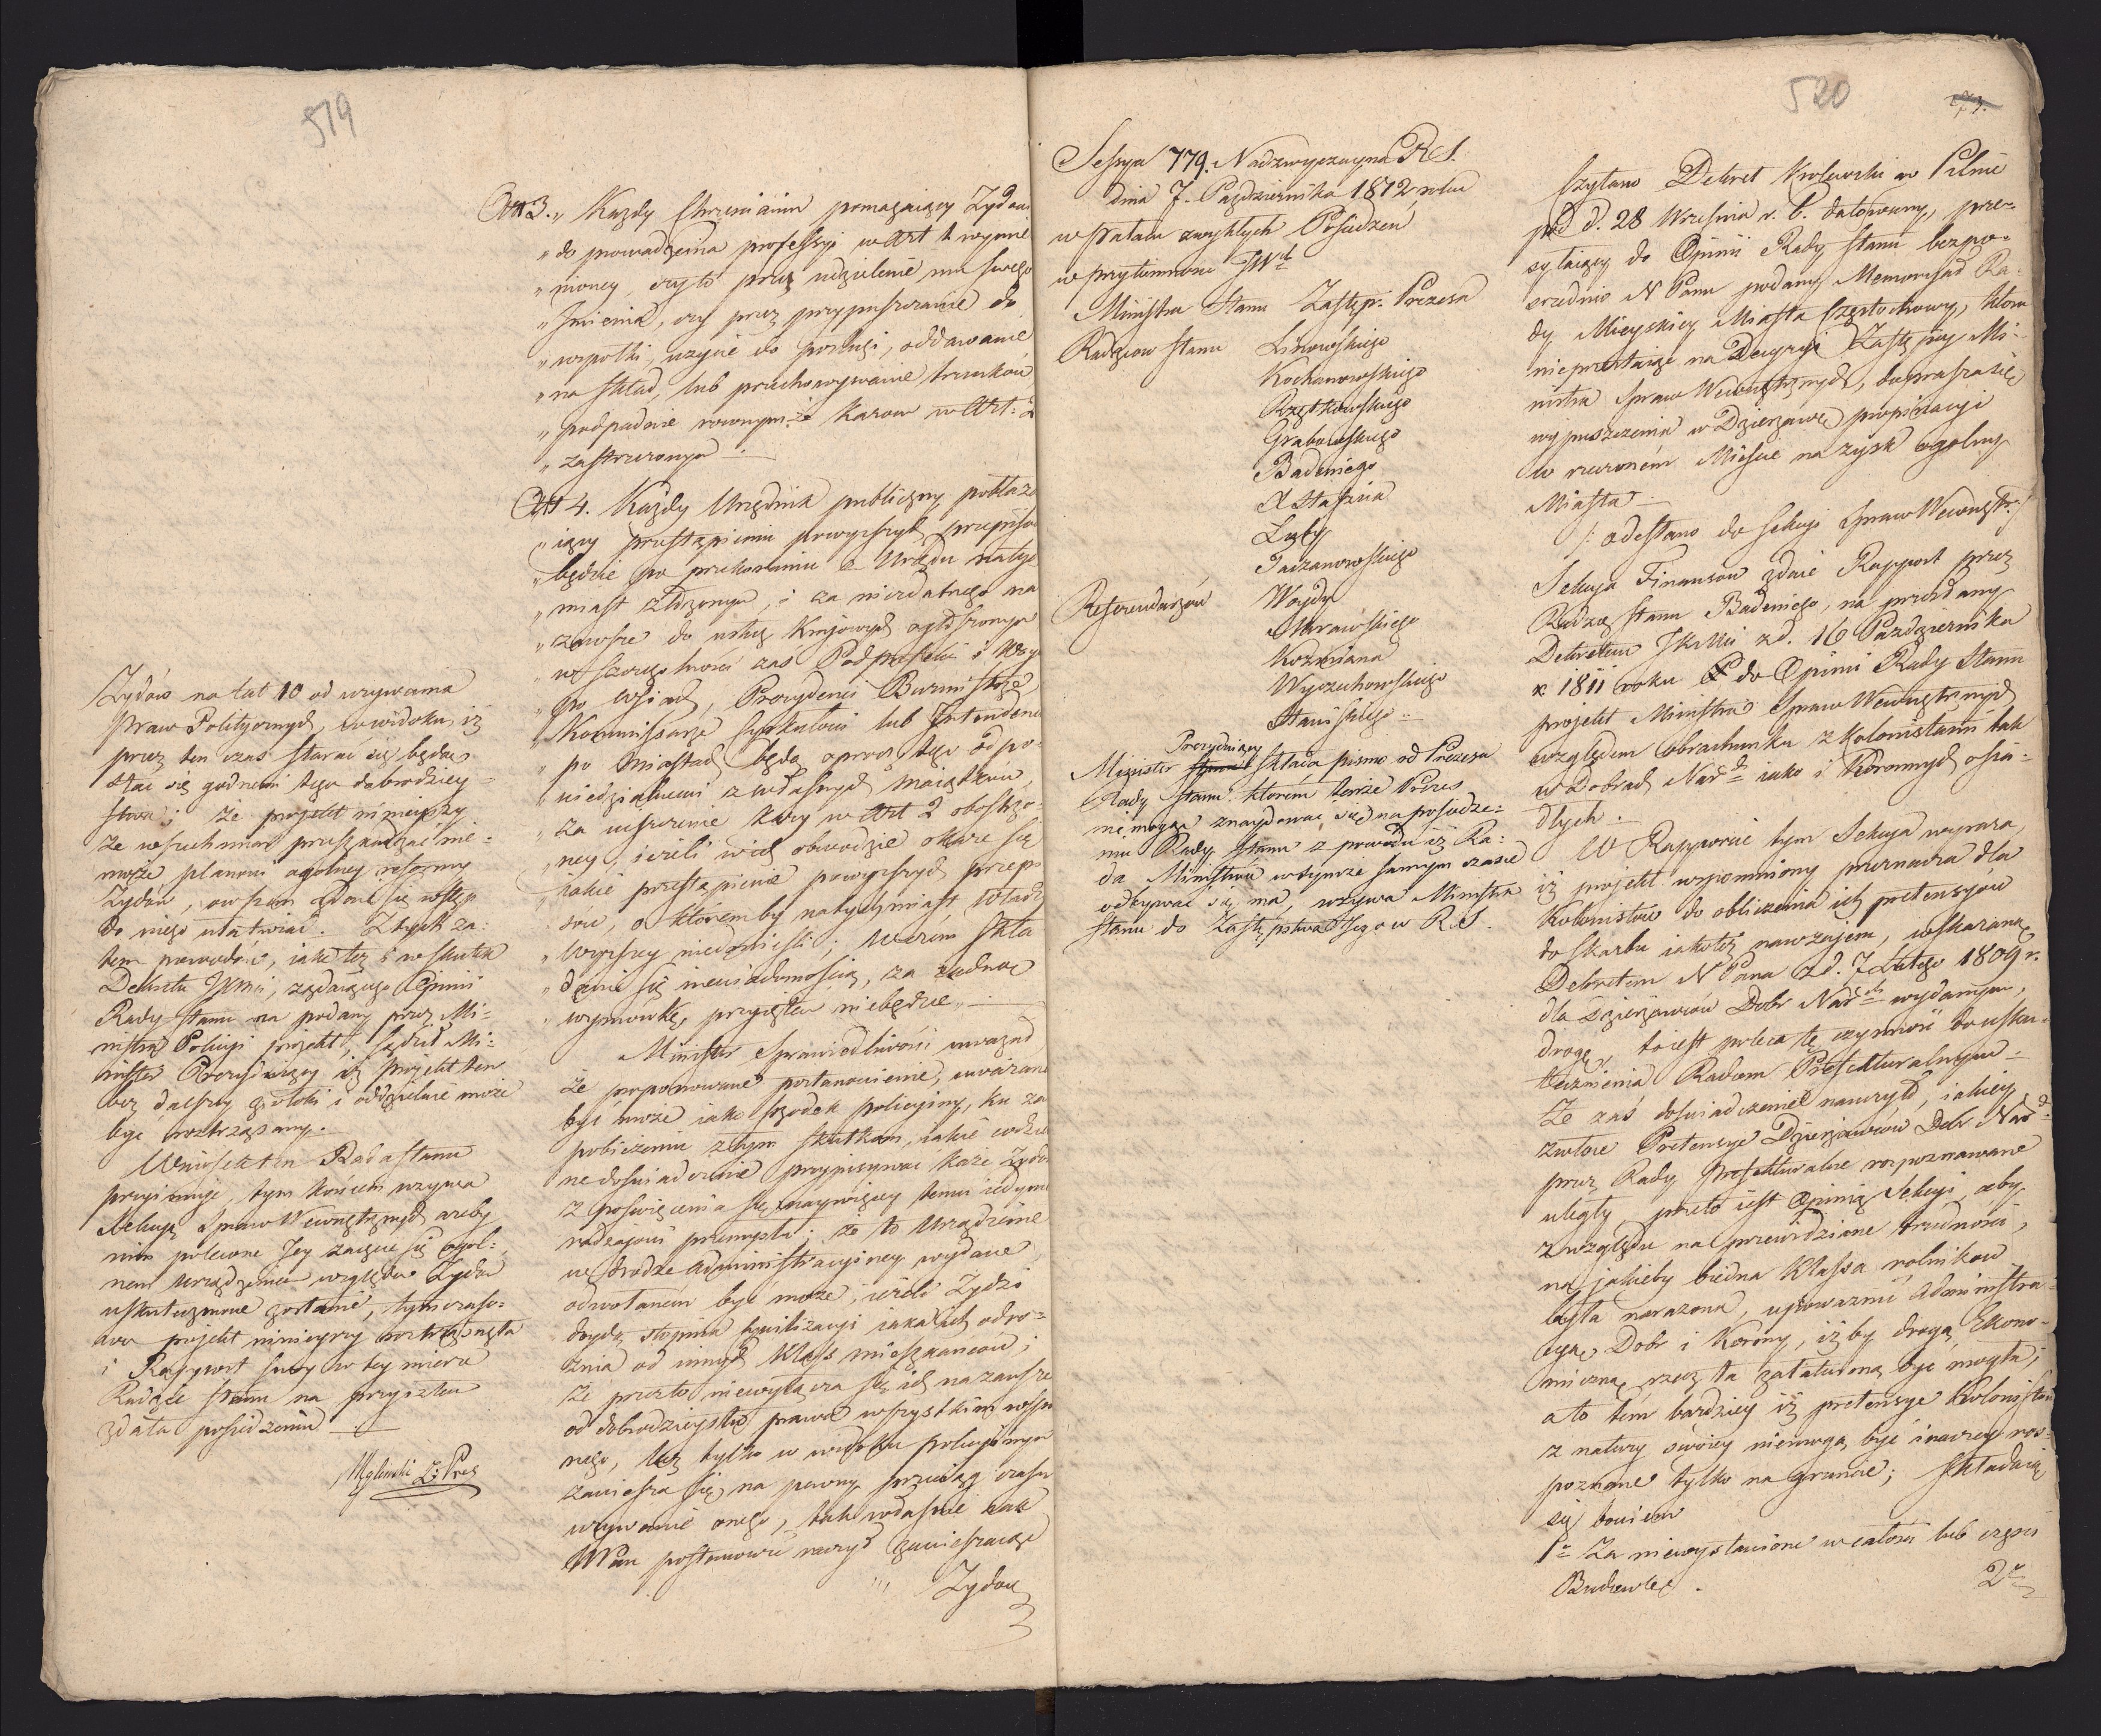 519
Art 3. „ Każdy Chrześcianin pomagaiący Żydowi
„ do prowadzenia professyi w Art 1 wymie„
„ nioney, czyto przez udzielenie mu swego
„ Jmienia, czy przez przypuszczanie do
„ wspołki, użycie do posługi, oddawanie
„ na skład, lub przechowywanie trunków
„ podpadnie rownymże karom w Art: 2
„ zastrzeżonym .
Art 4. Każdy Urzędnik publiczny pobłaża„
„ iący przestąpieniu powyższych przepisów
„ będzie po przekonaniu z Urzędu natych
„ miast złożonym, i za niezdatnego na
„ zawsze do usług Kraiowych ogłoszonym
„ w szczególności zaś Podprefekci i Wóyci
„ po wsiach, Prezydenci Burmistrze,
„ Kommissarze Cyrkułowi lub Intendenci
„ po Miastach będą oprocz tego odpo„
„ wiedzialnemi z własnych maiątków,
„ za uiszczenie kary w Art 2 obostrzo„
„ ney, ieżeli w ich obwodzie okaże się
„ iakie przestąpienie powyższych przepi
„ sów, o któremby natychmiast Władzy
„ Wyższey niedonieśli; w czem skła
„ danie się niewiadomością, za żadną
„ wymówkę, przyięte niebędzie„
Minister Sprawiedliwości uważał
że proponowane postanowienie, uważane
być może iako środek policyiny, ku za
pobieżeniu złym skutkom, iakie codzie
ne doświadczenie przypisywać każe Żydom
z poświęcenia się naywięcey temu iedyne
rodzaiowi przemysłu; że to Urządzenie
w drodze administracyiney wydane
odwołanem być może, ieżeli Żydzi
doydą stopnia cywilizacyi iaka ich odro=
żnia od innych klass mieszkancow;
że przezto niewyłącza się ich na zawsze
od dobrodzieystw prawa wszystkim wspól
nego, lecz tylko w widoku policyinym
zawiesza się na pewny przeciąg czasu
używanie onego, tak właśnie iak
NPan postanowić raczył zawieszaiąc
Żydow
Żydów na lat 10 od używania
Praw Politycznych, w widoku, iż
przez ten czas starać się będą
stać się godnemi tego dobrodziey=
stwa; że projekt ninieyszy
ze wszech miar przeszkadzać nie=
może planowi ogolney reformy
Żydów, owszem zdaie się wstęp
do niego ułatwiać. Z tych za=
tem powodów, iako też i w skutek
Dekretu JKMci, żądaiącego Opinii
Rady Stanu na podany przez Mi=
nistra Policyi projekt, sądził Mi=
nister Prezyduiący iż projekt ten
bez dalszey zwłoki i oddzielnie może
być roztrząsany.
Wniosek ten Rada Stanu
przyimuie, tym końcem wzywa
Sekcyę Spraw Wewnętrznych ażeby
nim polecone Jey zaięcie się ogol=
nem urządzeniem względem Żydów
uskutecznione zostanie, tymczaso=
wo projekt ninieyszy roztrząsnęła
i Rapport swoy w tey mierze
Radzie Stanu na przyszłem
zdała posiedzeniu
Węgleński Z: Prez
520
273.
Sessya 779. Nadzwyczayna RS.
dnia 7. Pazdziernika 1812 roku
w Pałacu zwykłych Posiedzeń
w przytomności JWch
Ministra Stanu Zastęp: Prezesa
Radzców Stanu Linowskiego
Kochanowskiego
Rzętkowskiego
Grabowskiego
Badeniego
X Staszica
Łuby
Tadzanowskiego
Referendarzów Woydy
Morawskiego
Kozmiana
Wyczechowskiego
Staniskiego
Prezyduiący
Minister Stanu składa pismo od Prezesa
Rady Stanu którém tenże Prezes
niemogąc znaydować się na posiedze=
niu Rady Stanu z powodu iż Ra=
da Ministrów w tymże samym czasie
odbywać się ma, wzywa Ministra
Stanu do Zastępstwa Jego w R.S.
Czytano Dekret Krolewski w Pilnie
pod d. 28 Września r. b. datowany, prze=
syłaiący do Opinii Rady Stanu bezpo=
średnio N Panu podany Memoryał Ra=
dy Mieyskiey Miasta Częstochowy, która
nieprzestaiąc na Decyzyi Zastępcy Mi=
nistra Spraw Wewnętrznych, doprasza się
wypuszczenia w Dzierżawę propinacyi
w rzeczoném Mieście na zysk ogolny
Miasta
/: odesłano do Sekcyi Spraw Wewnętr:/
Sekcya Finansow zdaie Rapport przez
Radzcę Stanu Badeniego, na przesłany
Dekretem JKMci z d. 16 Pazdziernika
r 1811 roku do Opinii Rady Stanu
projekt Ministra Spraw Wewnętrznych
względem obrachunku z kolonistami tak
w Dobrach Nardch iako i Koronnych osia=
dłych .
W Rapporcie tym Sekcya wyraża,
iż projekt wspomniony przeznacza dla
kolonistów do obliczenia ich pretensyów
do Skarbu iakoteż nawzajem, wskazaną
Dekretem N Pana z d. 7 Lutego 1809 r.
dla dzierżawców Dobr Nardch wydanym,
drogę, to iest poleca tę czynność do usku=
tecznienia Radom Prefekturalnym
Że zaś doświadczenie nauczyło, iakiey
zwłoce Pretensye Dzierżawców Dobr Nardch
przez Rady Prefekturalne rozpoznawane
uległy przeto iest Opinią Sekcyi, aby
z względu na przewidziane trudności,
na jakieby biedna klassa rolników
była narażona, upoważnić Administra=
cyą Dobr i Korony, iżby drogą Ekono=
miczną rzecz ta załatwioną być mogła;
a to tém bardziey iż pretensye kolonistów
z natury swoiey niemogą być inaczey roz=
poznane tylko na gruncie; składaią
się bowiem
1o Za niewystawione w całości lub części
Budowle .
2o